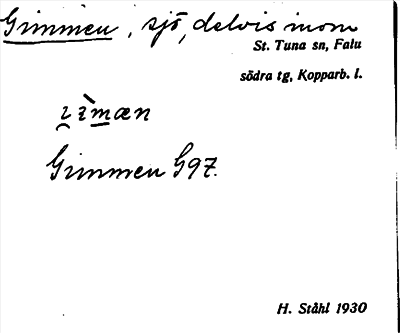 Grimmen, sjö, delvis inom
St. Tuna sn, Falu
södra tg, Kopparb. l.
Gimmen G97.
H. Ståhl 1930